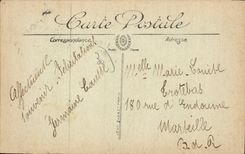 Carte Postale
Correspondance
Adresse
Affectueux
souvenir
Germaine
Melle Marie Louise
180 rue d'Endoume
Marseille
B.d.R